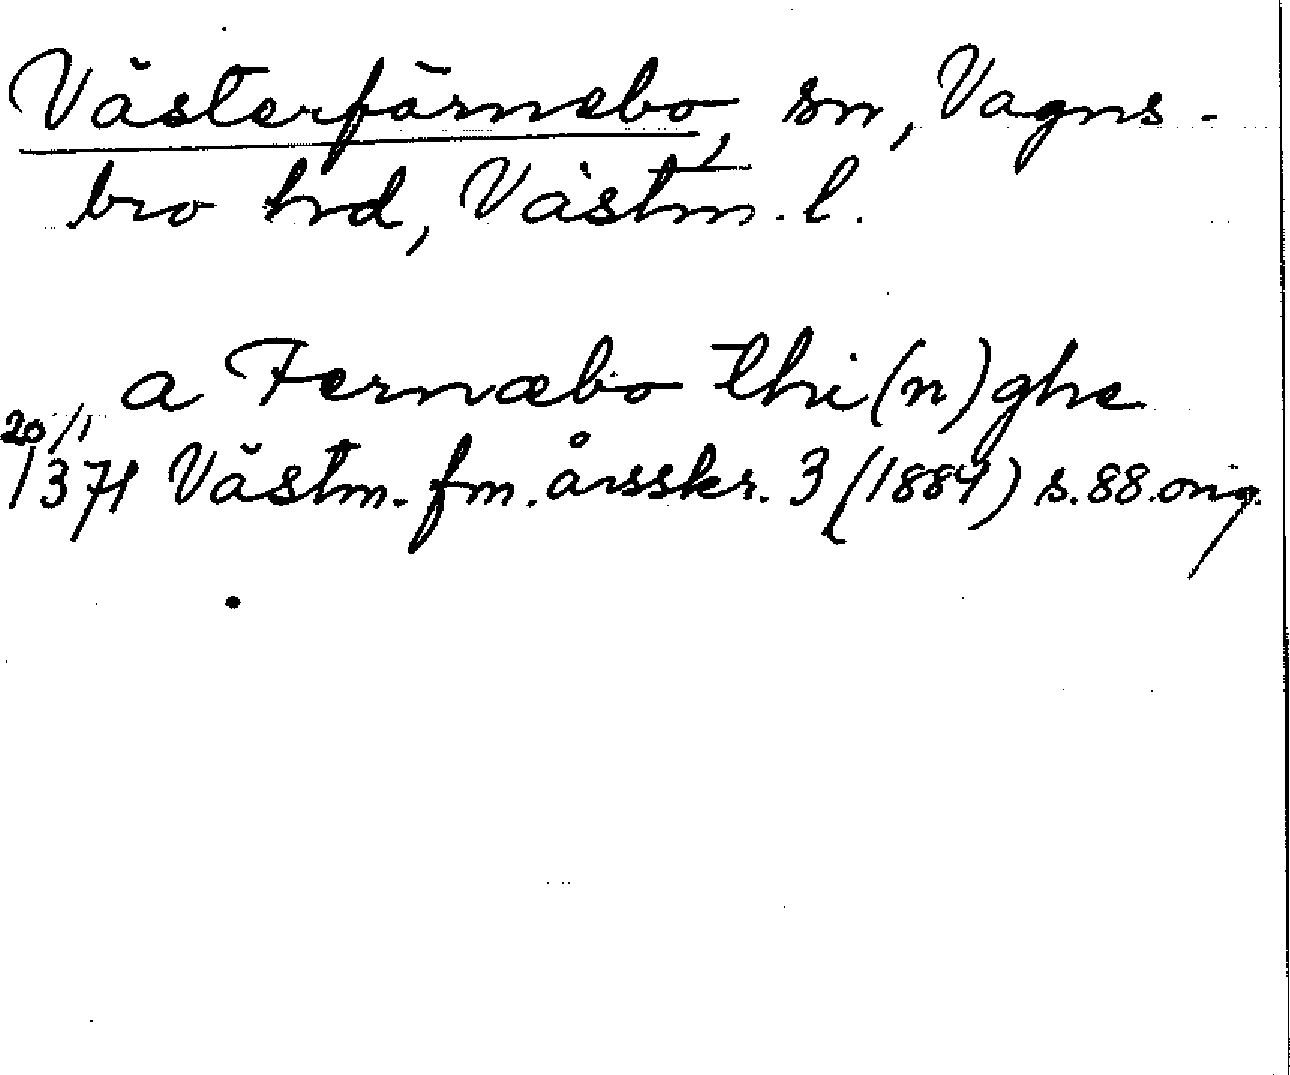 Västerfärnebo, sn, Vagns-
bro hrd, Västm. l.
a Fernæbo thi(n)ghe
20/1
1371 Västm. fm. årsskr. 3 (1884) s. 88. orig.